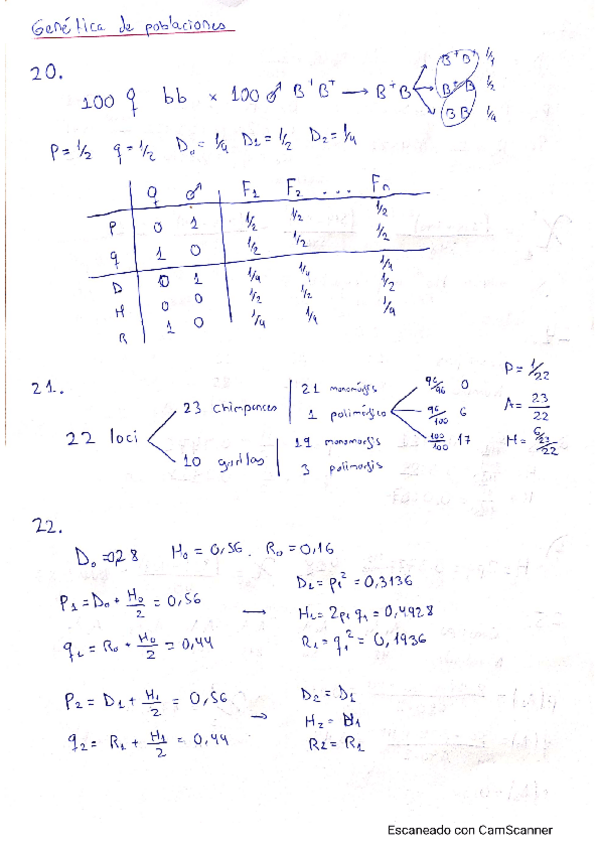 Genética de poblaciones
20.
100 ♀ bb × 100 ♂ B⁺B⁺ → B⁺B
B⁺B⁺ 1/4
B⁺B 1/2
BB 1/4
P = 1/2 q = 1/2 D₀ = 1/4 D1 = 1/2 D2 = 1/4
♀ ♂ F1 F2 ... Fn
P 0 1 1/2 1/2 1/2
q 1 0 1/2 1/2 1/2
D 0 1 1/4 1/4 1/4
H 0 0 1/2 1/2 1/2
R 1 0 1/4 1/4 1/4
21.
22 loci
23 chimpances
21 monomorfis
1 polimórfico
96/96 0
96/100 6
100/100 17
P = 1/22
A = 23/22
H = 6/23/22
10 gorilas
19 monomorfis
3 polimorfis
22.
D₀ = 0,28 H₀ = 0,56. R₀ = 0,16
P1 = D₀ + H₀/2 = 0,56
q1 = R₀ + H₀/2 = 0,44
→
D1 = p1² = 0,3136
H1 = 2p1 q1 = 0,4928
R1 = q1² = 0,1936
P2 = D1 + H1/2 = 0,56
q2 = R1 + H1/2 = 0,44
→
D2 = D1
H2 = H1
R2 = R1
Escaneado con CamScanner